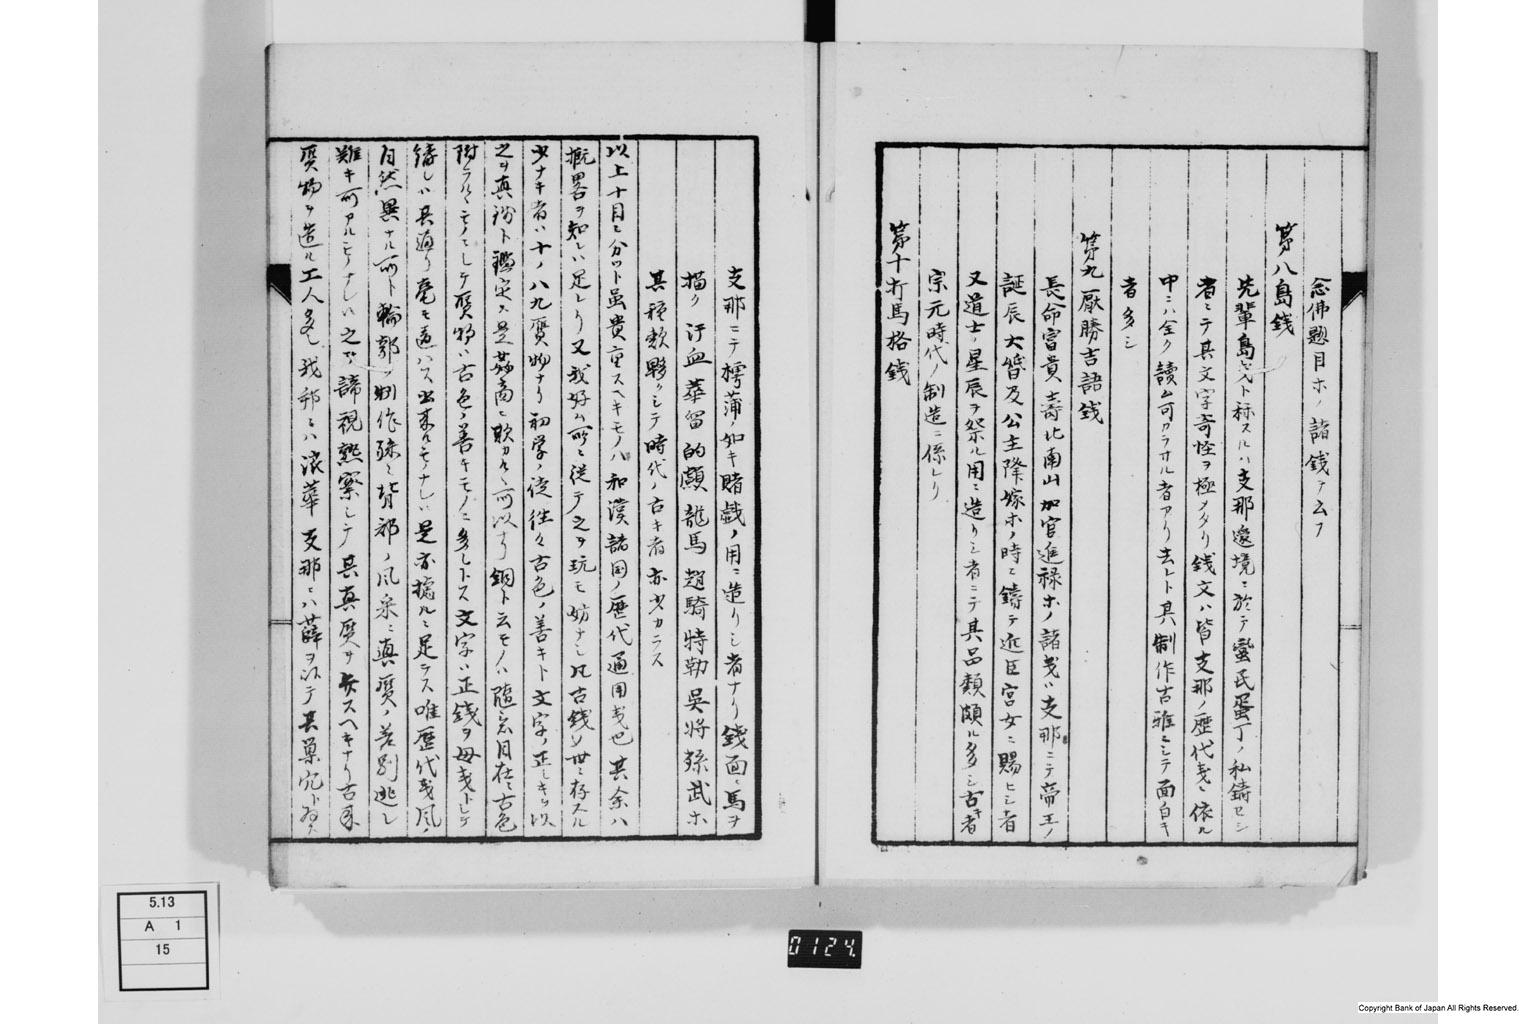 念佛題目ホノ諸銭ヲ云フ
第八島銭
先輩島銭ト称スルハ支那邊境ニ於テ蛮民蛋丁ノ私鋳セシ
者ニテ其文字奇怪ヲ極メタリ銭文ハ皆支那ノ歴代銭ニ依ル
中ニハ全ク讀ム可カラサル者アリ去レト其制作古雅ニシテ面白キ
者多シ
第九厭勝吉語銭
長命富貴壽比南山加官進禄ホノ諸銭ハ支那ニテ帝王ノ
誕辰大婚及公主降嫁ホノ時ニ鋳テ近臣宮女ニ賜ヒシ者
又道士ノ星辰ヲ祭ル用ニ造リシ者ニテ其品類頗ル多シ古キ者
宗元時代ノ制造ニ係レリ
第十打馬格銭
支那ニテ樗蒲ノ如キ賭戯ノ用ニ造リシ者ナリ銭面ニ馬ヲ
描ク汗血華留的顱龍馬趙騎特勒吳将孫武ホ
其種類夥クシテ時代ノ古キ者亦少カラス
以上十目ニ分ツト虽貴重スヘキモノハ和漢諸国ノ歴代通用銭也其余ハ
概畧ヲ知レハ足レリ又我好ム所ニ従テ之ヲ玩モ妨ナシ凡古銭ノ世ニ存スル
少ナキ者ハ十ノ八九贋物ナリ初学ノ徒往々古色ノ善キト文字ノ正シキヲ以
之ヲ真物ト鑑定ス是奸商ニ欺カルヽ所以ナリ銅ト云モノハ随意自在ニ古色
附ラルヽモノニシテ贋物ハ古色ノ善キモノニ多シトス文字ハ正銭ヲ母銭トシテ
鋳レハ其通リ毫モ違ハス出来ルモノナレハ是亦據ルニ足ラス唯歴代銭風ノ
自然異ナル所ト輪郭ノ制作殊ニ背部ノ風采ニ真贋ノ差別逃レ
難キ所アルモノナレハ之ヲ諦視熟察シテ其真贋ヲ弁スヘキナリ古来
贋物ヲ造ル工人多シ我邦ニハ浪華支那ニハ薛ヲ以テ其巣穴ト為ス
5.13
A 1
15
0124
Copyright Bank of Japan All Rights Reserved.